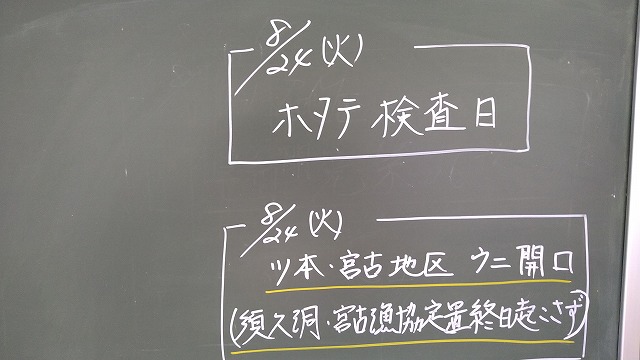 8/24(火)
ホタテ検査日
8/24(火)
ツ本・宮古地区 ウニ開口
(須久洞・宮古漁協定置終日起こさず)